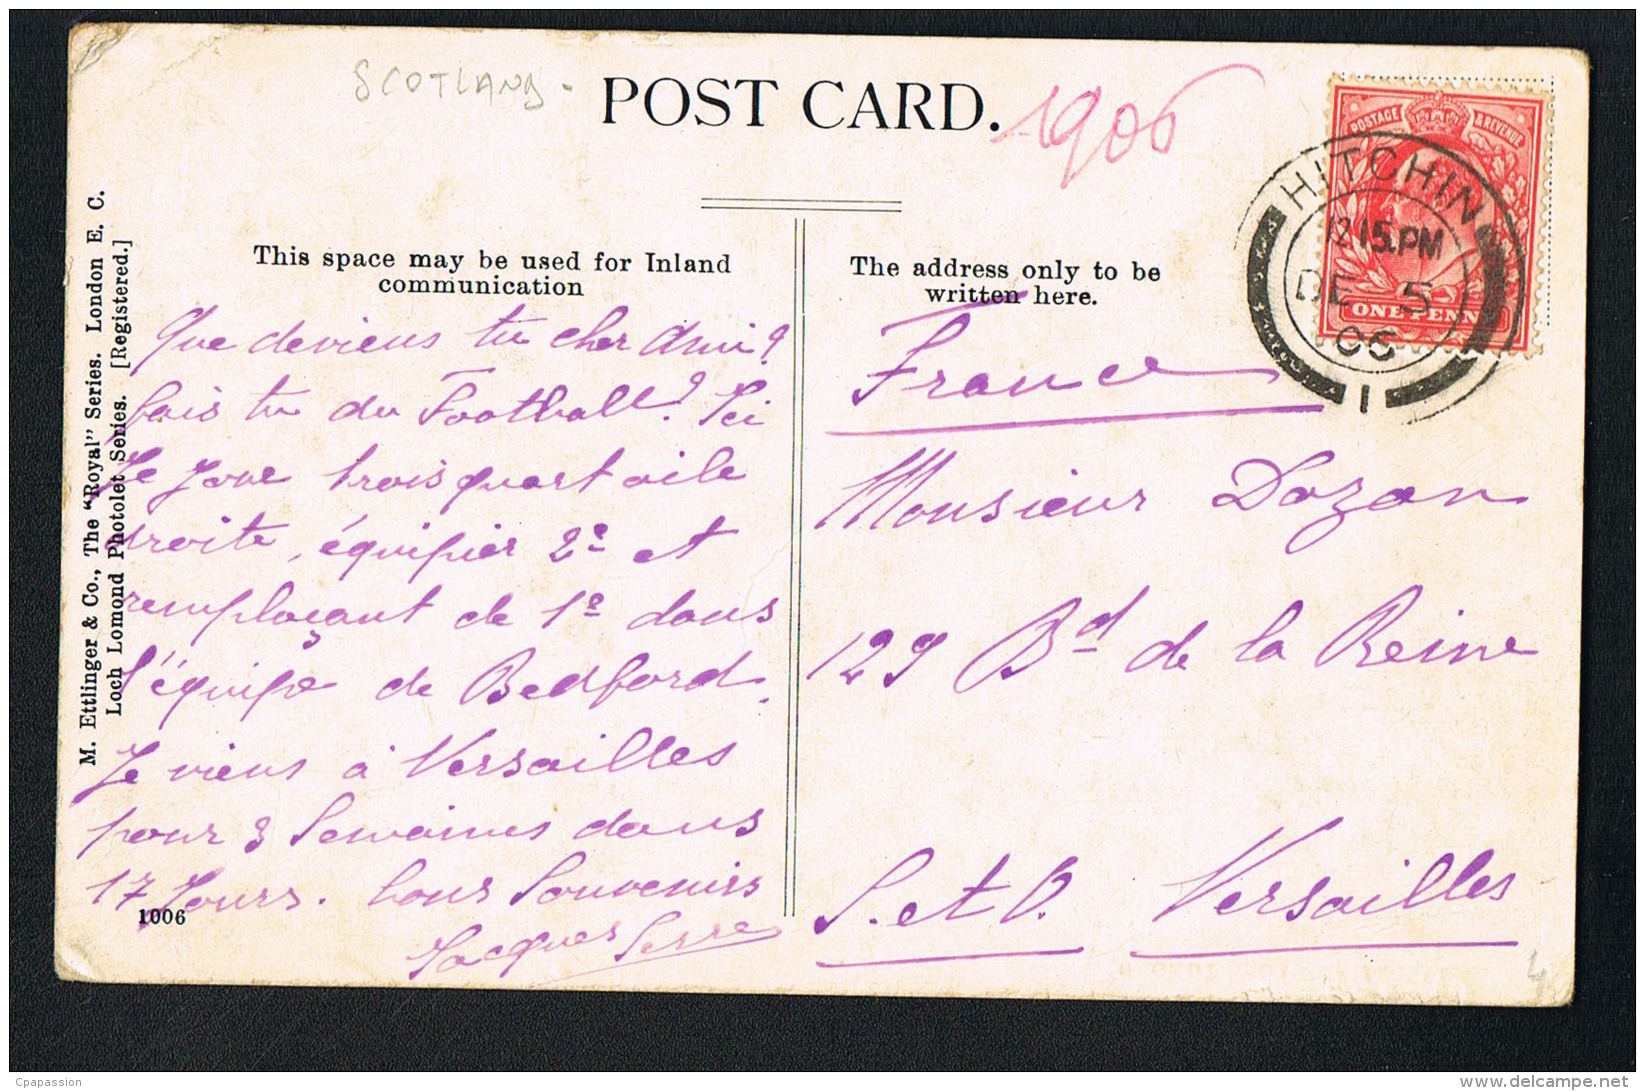 SCOTLAND -
POST CARD.
1906
POSTAGE & REVENUE
ONE PENNY
HITCHIN
12 15 PM
DE 5
06
1
M. Ettlinger & Co., The "Royal" Series. London E. C.
Loch Lomond Photolet Series. [Registered.]
This space may be used for Inland
communication
Que deviens tu cher Ami?
fais tu du Football? Ici
Je Joue trois quart aile
droite, équipier 2e et
remplaçant de 1e dans
l'équipe de Bedford.
Je viens à Versailles
pour 3 Semaines dans
17 Jours. bons Souvenirs
Jacques Serre
1006
The address only to be
written here.
France
Monsieur Dozon
129 Bd de la Reine
S. et O. Versailles
4
Cpapassion
www.delcampe.net